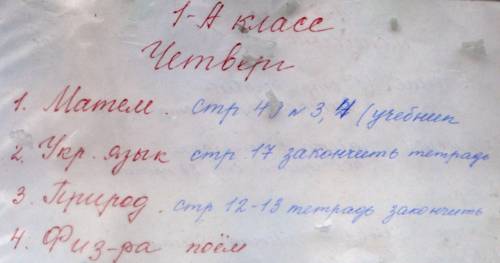 1-А класс
Четверг
1. Матем. стр 4 № 3, 4 (учебник
2. Укр. язык стр 17 закончить тетрадь
3 Природ. стр 12-13 тетрадь закончить
4. Физ-ра поём